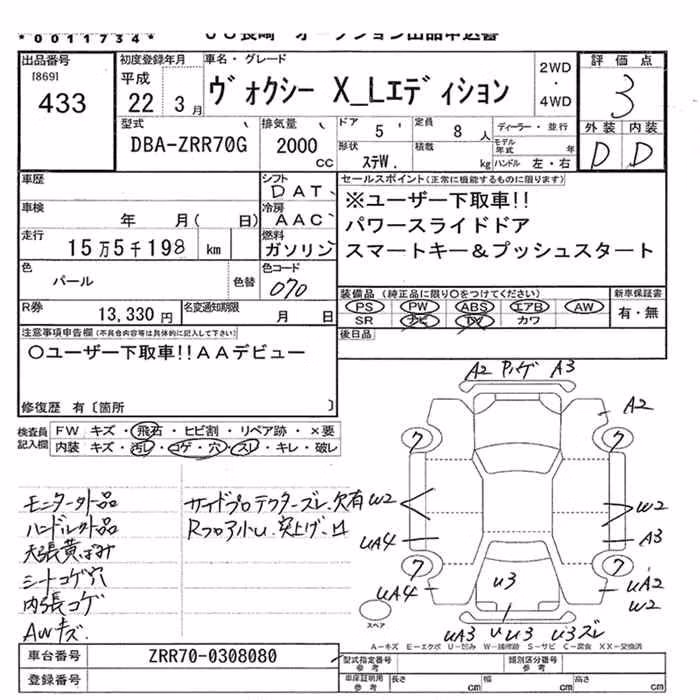 *0011734*
ＪＵ長崎 オークション出品申込書
出品番号
[869]
433
初度登録年月
平成
22年 3月
車名・グレード
ヴォクシー X_Lエディション
2WD
・
4WD
評価点
3
外装 内装
D D
型式
DBA-ZRR70G
排気量
2000
CC
ドア
5
定員
8人
形状
ステW.
積載
kg
ディーラー・並行
モデル年式 年
ハンドル 左・右
車歴
シフト
DAT
セールスポイント(正常に機能するものに限ります)
※ユーザー下取車!!
パワースライドドア
スマートキー&プッシュスタート
車検
年 月( 日)
冷房
AAC
走行
15万5千198 km
燃料
ガソリン
色
パール
色替
色コード
070
装備品 (純正品に限り○をつけてください)
PS PW ABS エアB AW
SR ナビ TV カワ
新車保証書
有・無
R券
13,330円
名変通知期限
月 日
後日品
注意事項申告欄(不具合内容等は具体的に記入して下さい)
○ユーザー下取車!!AAデビュー
修復歴 有〔箇所 〕
検査員記入欄
FW キズ・飛石・ヒビ割・リペア跡・×要
内装 キズ・汚レ・コゲ・穴・スレ・キレ・破レ
モニター外品
ハンドル外品
天張黄ばみ
シートコゲ穴
内張コゲ
AWキズ.
サイドプロテクターズレ.欠有
Rフロア小U.突上げ.凹
A2 Pハゲ A3
A2
7 7
W2 W2
UA4 A3
7 7
UA4 U3 UA2
W2
スペア
UA3 U U3 U3ズレ
A-キズ E-エクボ U-凹み W-補修跡 S-サビ C-腐食 XX-交換済
車台番号
ZRR70-0308080
登録番号
型式指定番号
参考
類別区分番号
参考
車庫証明用
参考
長さ cm
幅 cm
高さ cm